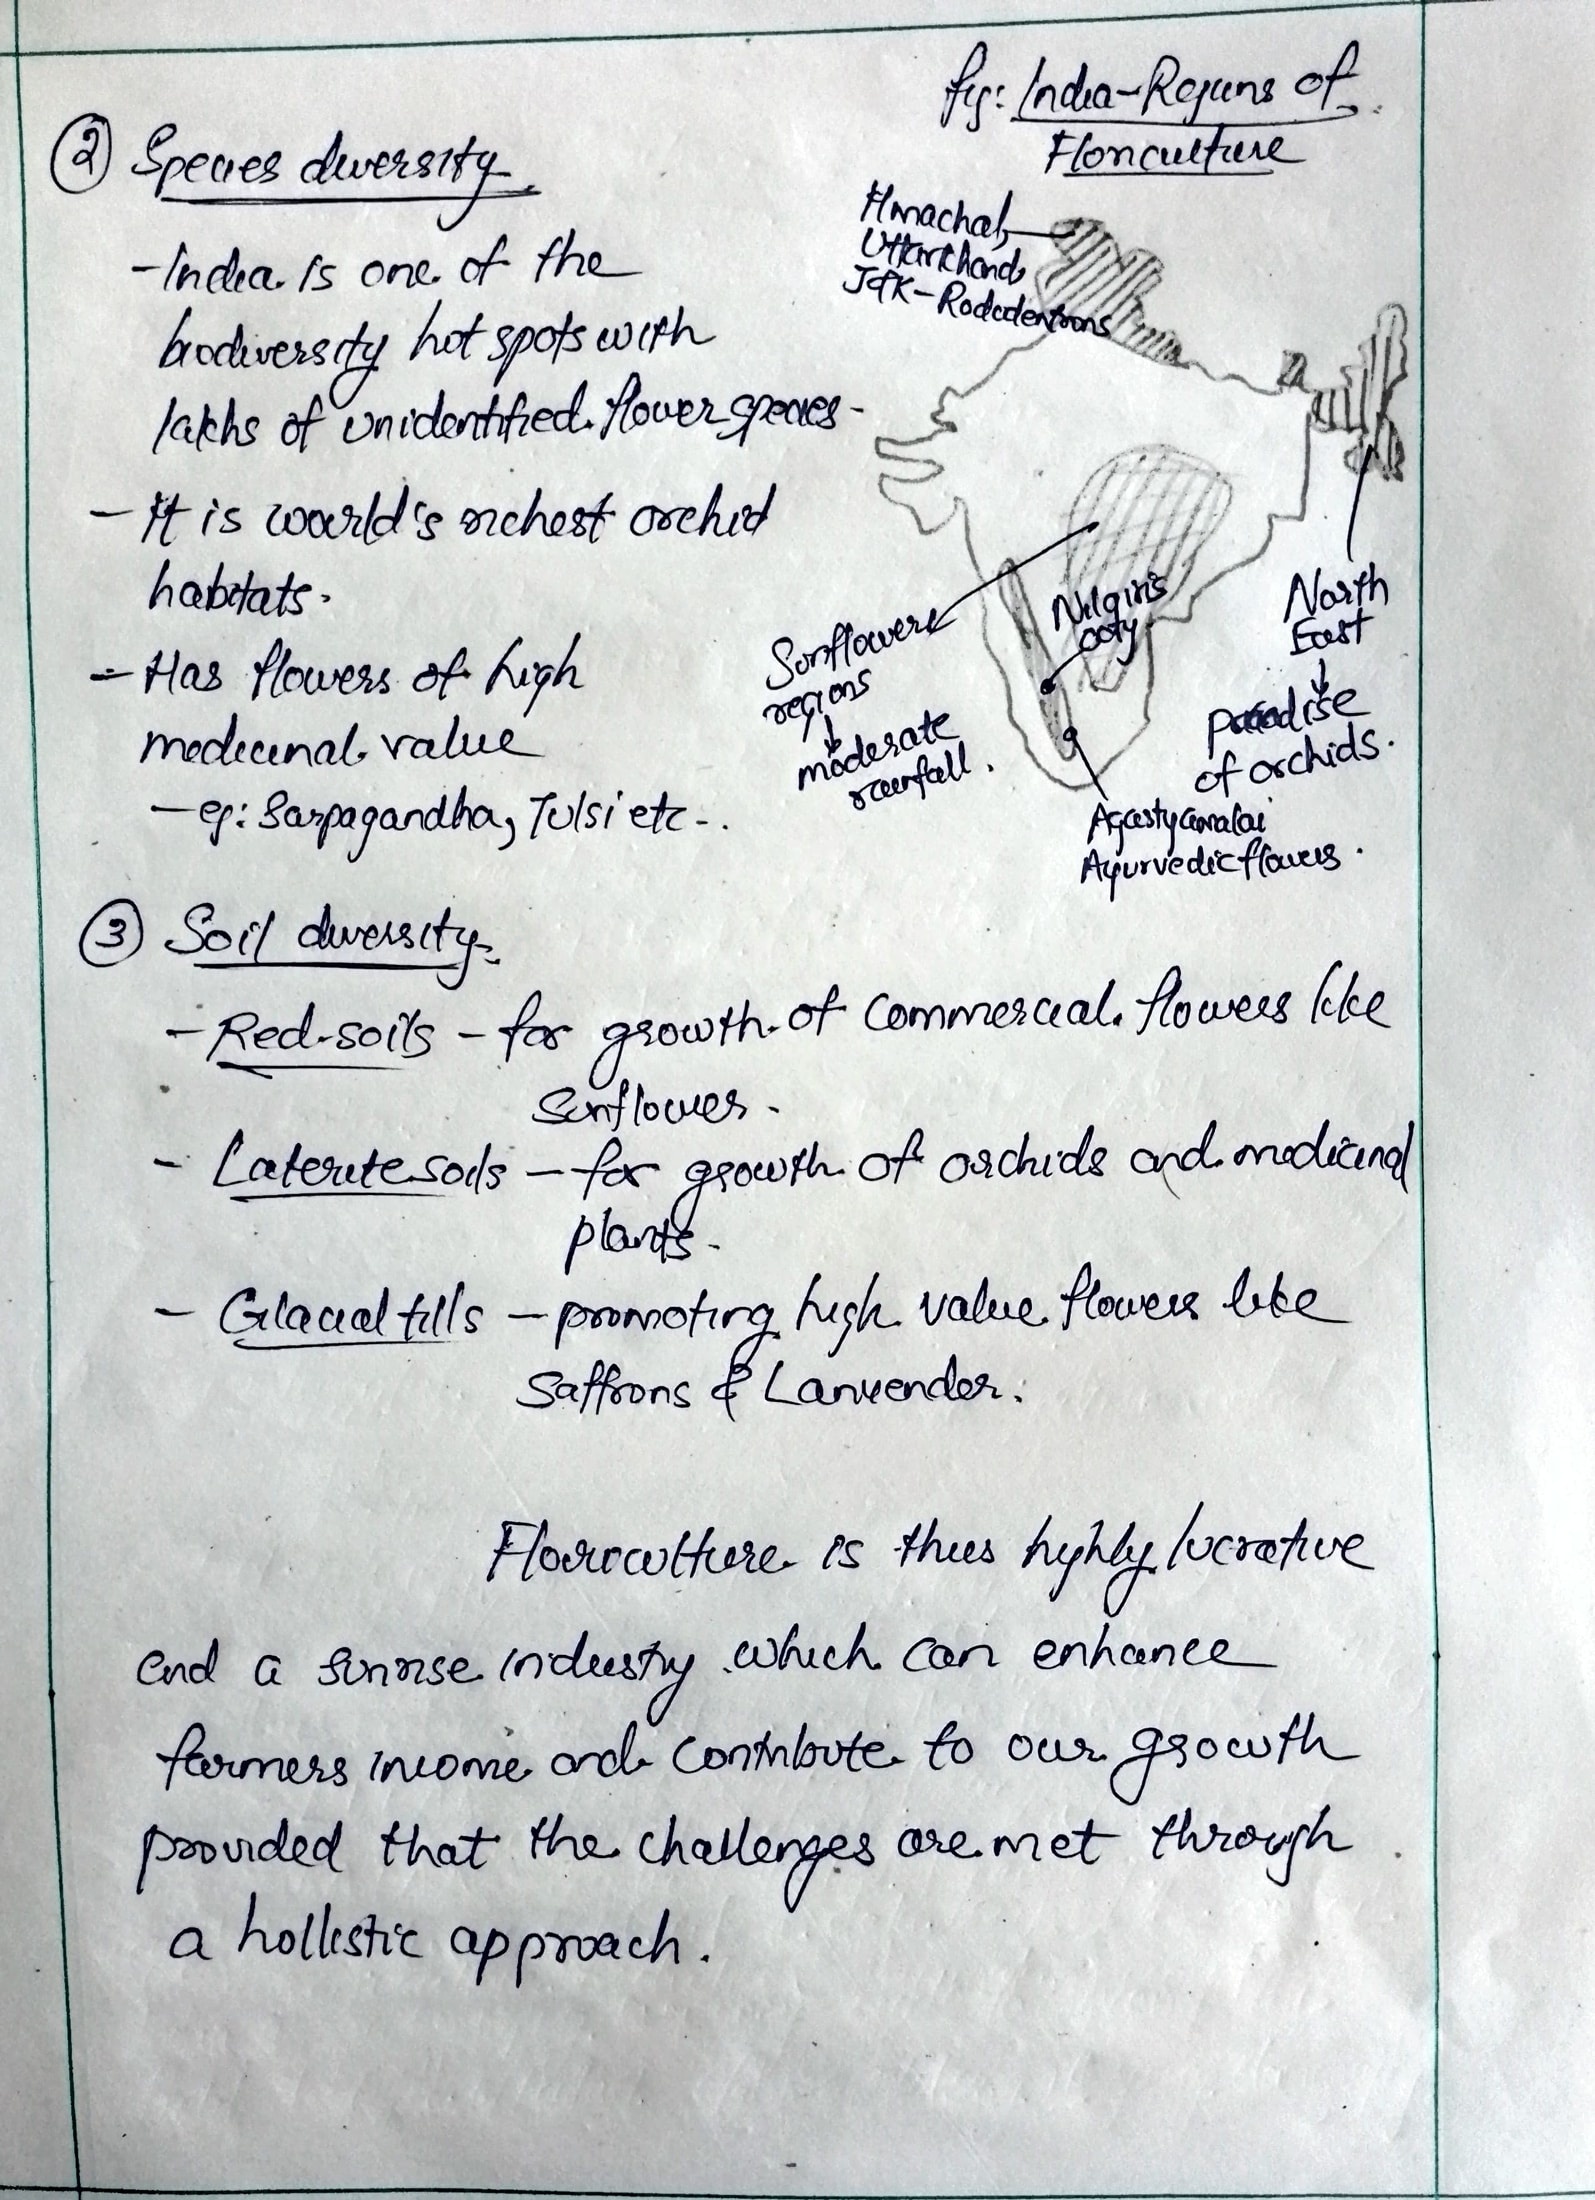 fig: India-Regions of
Floriculture
② Species diversity
- India is one of the
biodiversity hot spots with
lakhs of unidentified flower species -
- It is world's richest orchid
habitats.
- Has flowers of high
medicinal value
- eg: Sarpagandha, Tulsi etc -.
Himachal,
Uttarkhand,
J&K - Rododentrons
Sunflower
regions
↓
moderate
rainfall.
Nilgiris
ooty
North
East
↓
paradise
of orchids.
Agastyamalai
Ayurvedic flowers.
③ Soil diversity
- Red soils - for growth of commercial flowers like
Sunflower.
- Laterite soils - for growth of orchids and medicinal
plants.
- Glacial tills - promoting high value flowers like
Saffrons & Lanvender.
Flouriculture is thus highly lucrative
and a sunrise industry which can enhance
farmers income and contribute to our growth
provided that the challenges are met through
a hollistic approach.